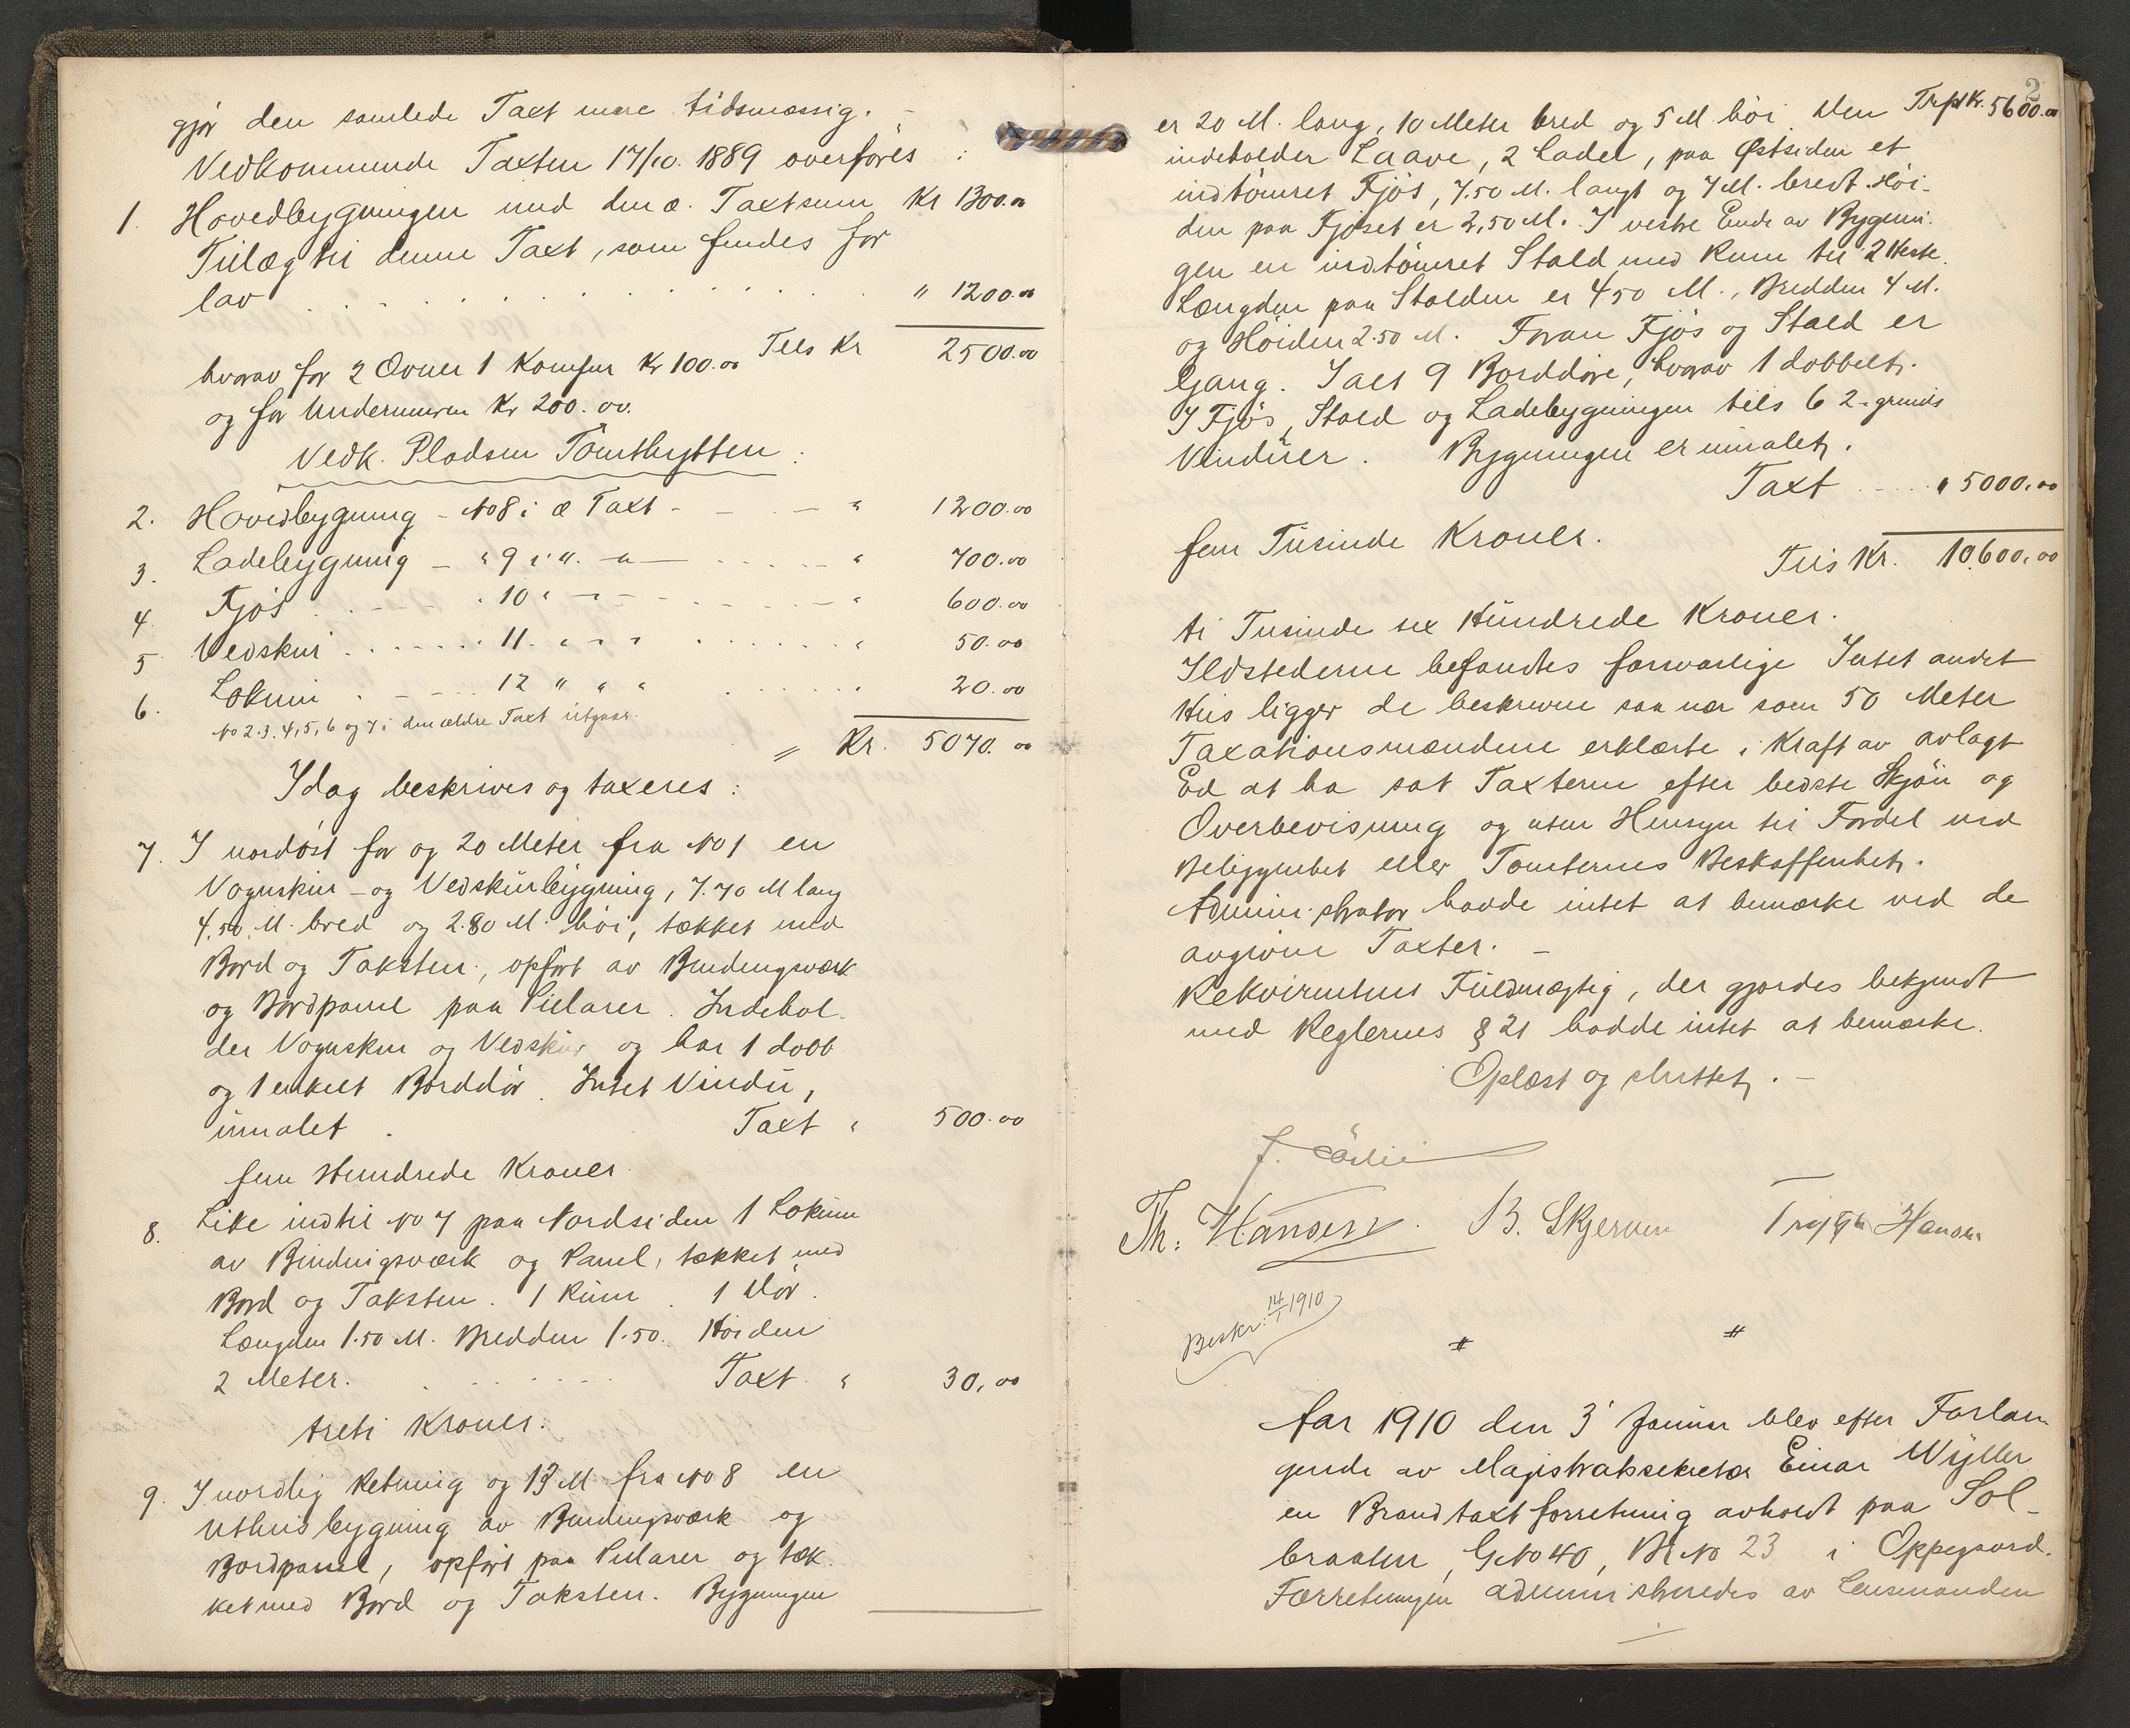 gjør den samlede Taxt mere tidsmæssig. –
Vedkommende Taxten 17/10. 1889 overføres :
1. Hovedbygningen med den æ. Taxtsum Kr 1300.00
Tillæg til denne Taxt, som findes for
lav . . . . . . . . . . " 1200.00
Tils Kr 2500.00
hvorav for 2 Ovner 1 Komfur Kr 100.00
og for Undermuren Kr 200.00.
Vedk. Pladsen Tomthytten :
2. Hovedbygning - No 8 i æ Taxt - - - - " 1200.00
3. Ladebygning - " 9 i " - " - . . . . - " 700.00
4 Fjøs . . - - - " 10 " - " - - - - - - " 600.00
5 Vedskur . . . . . . " 11. " " " . . . . . " 50.00
6. Lokum . - - . . 12 " " " . . . . . . 20.00
No 2.3.4,5,6 og 7 i den ældre Taxt utgaar.
" Kr. 5070.00
Idag beskrives og taxeres :
7. I nordøst for og 20 Meter fra No 1 en
Vognskur- og Vedskurbygning, 7.70 M lang
4,50 M. bred og 2.80 M. høi, tækket med
Bord og Taksten, opført av Bindingsværk
og Bordpanel paa Pillarer. Indehol-
der Vognskur og Vedskur og har 1 dobb
og 1 enkelt Borddør. Intet Vindu,
umalet . Taxt " 500.00
fem Hundrede Kroner.
8. Like indtil No 7 paa Nordsiden 1 Lokum
av Bindingsværk og Panel, tækket med
Bord og Taksten. 1 Rum . 1 Dør.
Længden 1.50 M. Bredden 1.50. Høiden
2 Meter. . . . . . . Taxt. " 30,00
treti Kroner.
9. I nordlig Retning og 13 M fra No 8 en
Uthusbygning av Bindingsværk og
Bordpanel, opført paa Pillarer og tæk-
ket med Bord og Taksten. Bygningen
2
Trpt Kr. 5600.00
er 20 M. lang, 10 Meter bred og 5 M høi. Den
indeholder Laave, 2 Lader, paa Østsiden et
indtømret Fjøs, 7.50 M. langt og 7 M. bredt. Høi-
den paa Fjøset er 2,50 M. I vestre Ende av Bygnin-
gen en indtømret Stald med Rum til 2 Heste.
Længden paa Stalden er 4 50 M., Bredden 4 M.
og Høiden 2.50 M. Foran Fjøs og Stald er
Gang. I alt 9 Borddøre, hvorav 1 dobbelt.
I Fjøs, Stald og Ladebygningen tils 6 2-grinds
Vinduer. Bygningen er umalet.
Taxt - . . . " 5000.00
fem Tusinde Kroner.
Tils Kr. 10600.00
ti Tusinde sex Hundrede Kroner.
Ildstederne befandtes forsvarlige Intet andet
Hus ligger de beskrevne saa nær som 50 Meter
Taxationsmændene erklærte i Kraft av avlagt
Ed at ha sat Taxterne efter bedste Skjøn og
Overbevisning og uten Hensyn til Fordel ved
Beliggenhet eller Tomternes Beskaffenhet.
Administrator hadde intet at bemærke ved de
avgivne Taxter. –
Rekvirentens Fuldmægtig, der gjordes bekjendt
med Reglernes § 21 hadde intet at bemærke.
Oplæst og sluttet. –
Th: Hansen. B. Skjerven Trygve Hansen
Beskr. 14/1 1910
" "
Aar 1910 den 3' Januar blev efter Forlan-
gende av Magistratssekretær Einar Wyller
en Brandtaxtforretning avholdt paa Sol-
braaten, GNo 40, BrNo 23 i Oppegaard.
Forretningen administreredes av Lensmanden